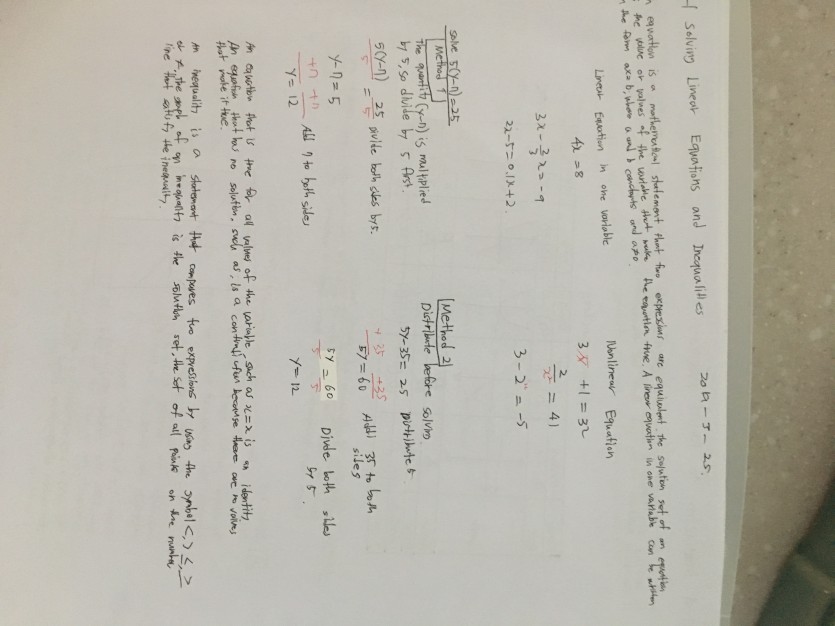 -1 Solving Linear Equations and Inequalities 2019-5-25.
n equation is a mathematical statement that two expressions are equivalent. The solution set of an equation
the value or values of the variable that make the equation true. A linear equation in one variable can be written
n the form ax=b, where a and b constants and a≠0.
Linear Equation in one variable
4x=8
3x-2/3x=-9
2x-5=0.1x+2.
Nonlinear Equation
+1=32
= 41
3-2 = -5
solve 5(y-7)=25
Method 1
The quantity (y-7) is multiplied
by 5, so divide by 5 first.
5(y-7)/5 = 25/5 Divide both sides by 5.
y-7=5
+7 +7 Add 7 to both sides
y=12
Method 2
Distribute before solving.
5y-35=25 Distribute 5
+35 +35 Add 35 to both
5y=60 sides
5y/5 = 60/5 Divide both sides
by 5.
y=12
An equation that is true for all values of the variable, such as x=x is an identity
An equation that has no solution, such as, is a contradiction because there are no values
that make it true.
An inequality is a statement that compares two expressions by using the symbol <, > ≤, ≥
or ≠. The graph of an inequality is the solution set, the set of all points on the number
line that satisfy the inequality.